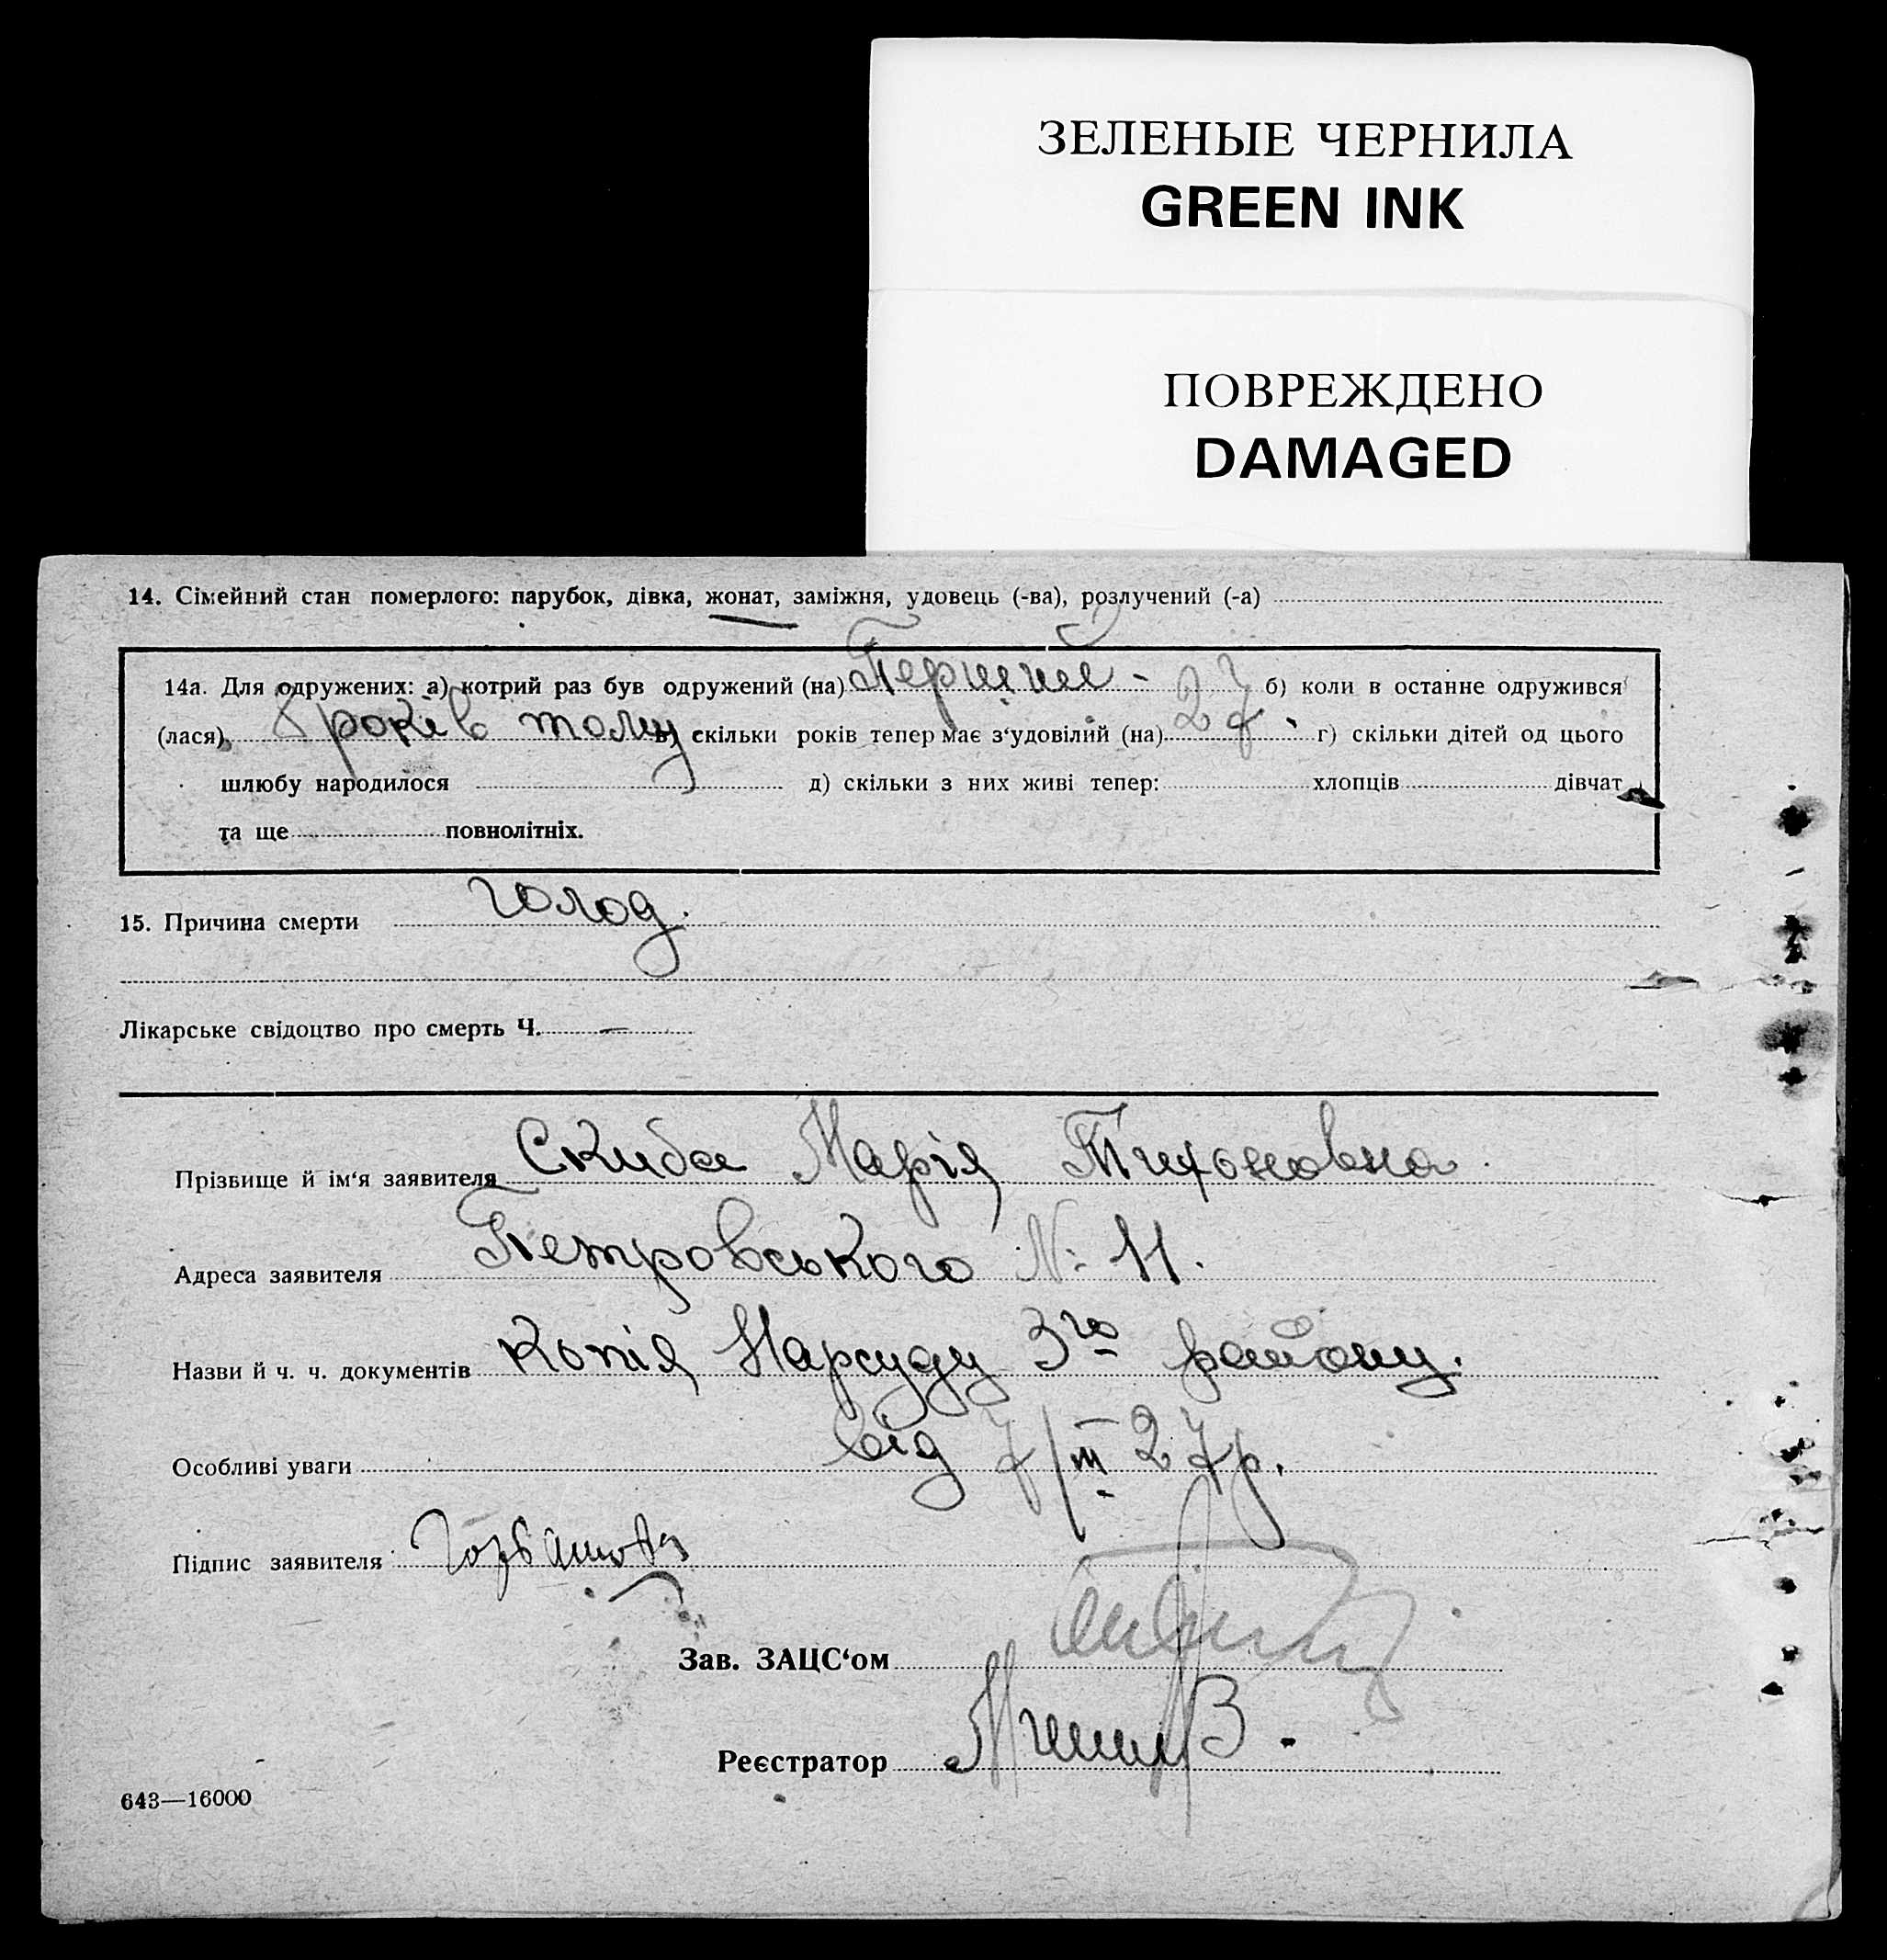 ЗЕЛЕНЫЕ ЧЕРНИЛА
GREEN INK
ПОВРЕЖДЕНО
DAMAGED
14. Сімейний стан померлого: парубок, дівка, жонат, заміжня, удовець (-ва), розлучений (-а)
14а. Для одружених: а) котрий раз був одружений (на) Перший - 27 б) коли в останнє одружився
(лася) 8 років тому в) скільки років тепер має з‘удовілий (на) 27. г) скільки дітей од цього
шлюбу народилося д) скільки з них живі тепер: хлопців дівчат
та ще повнолітніх.
15. Причина смерти голод.
Лікарське свідоцтво про смерть Ч. —
Прізвище й ім‘я заявителя Скиба Марія Тихоновна.
Адреса заявителя Петровського №: 11.
Назви й ч. ч. документів Копія Нарсуду 3го району.
Особливі уваги від 7/III 27р.
Підпис заявителя
Зав. ЗАЦС‘ом
Реєстратор
643—16000